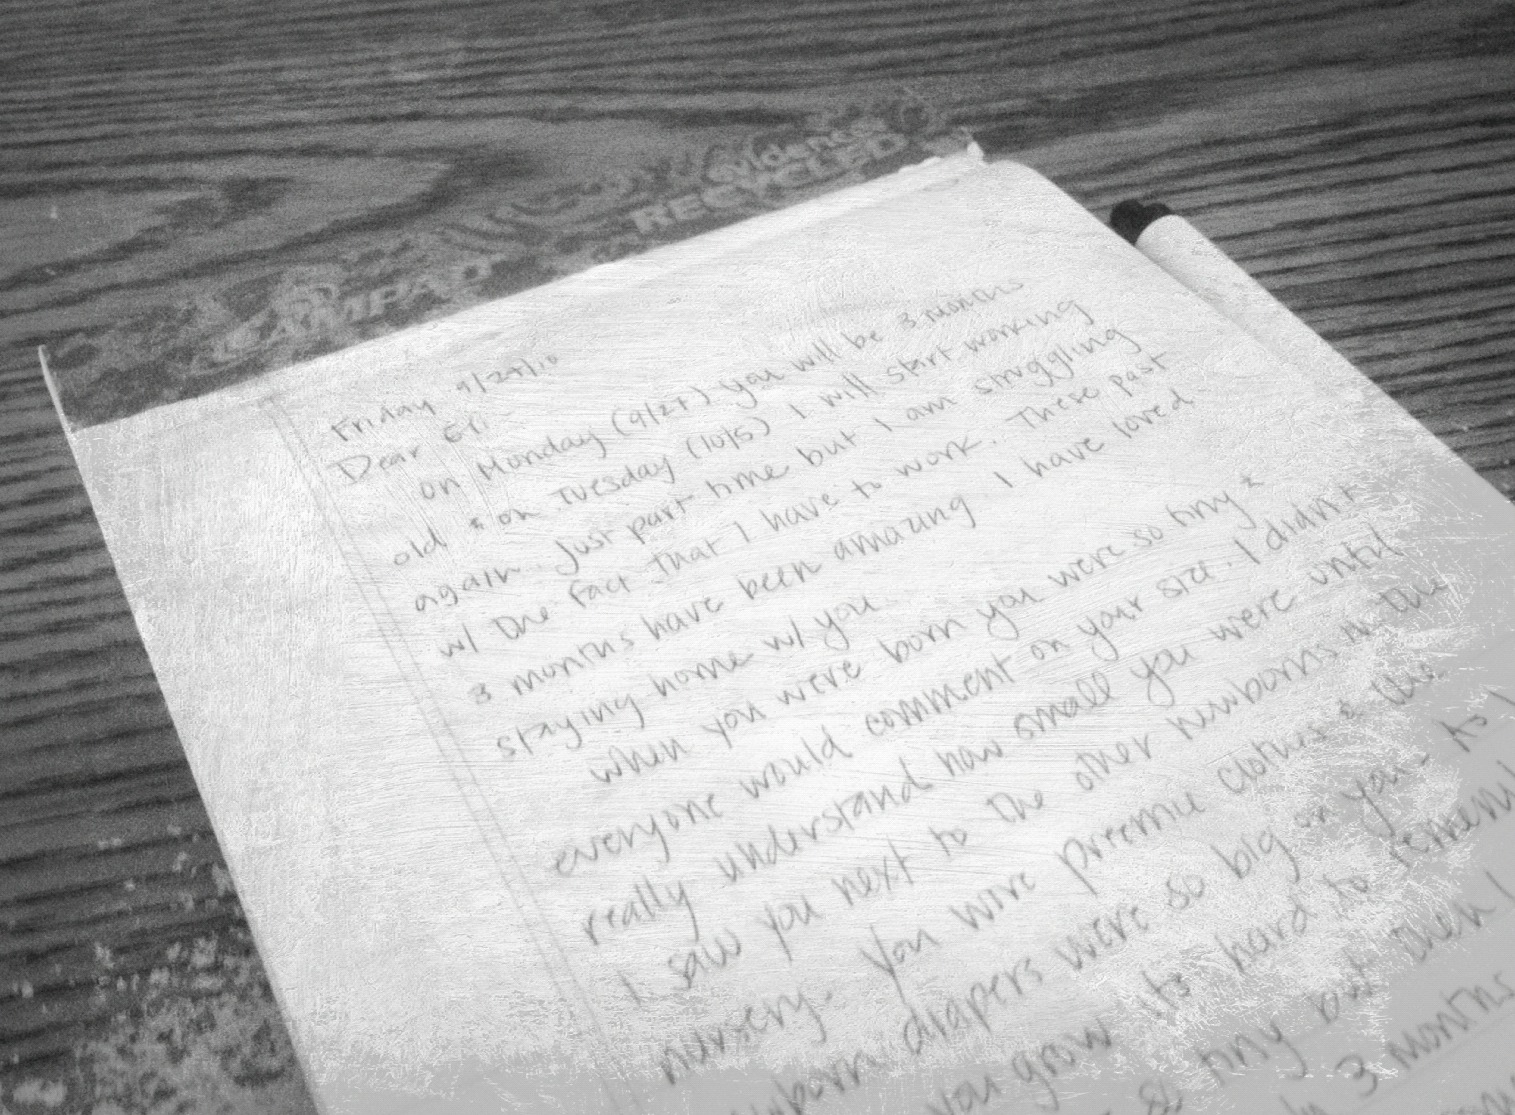 CAMPAD evidence
RECYCLED
Friday 9/24/10
Dear Eri
on Monday (9/27) you will be 3 months
old & on Tuesday (10/5) I will start working
again. Just part time but I am struggling
w/ the fact that I have to work. These past
3 months have been amazing. I have loved
staying home w/ you.
When you were born you were so tiny &
everyone would comment on your size. I didn't
really understand how small you were until
I saw you next to the other newborns in the
nursery. You wore preemie clothes & the
newborn diapers were so big on you.
you grow its hard to
so tiny but then I
3 months